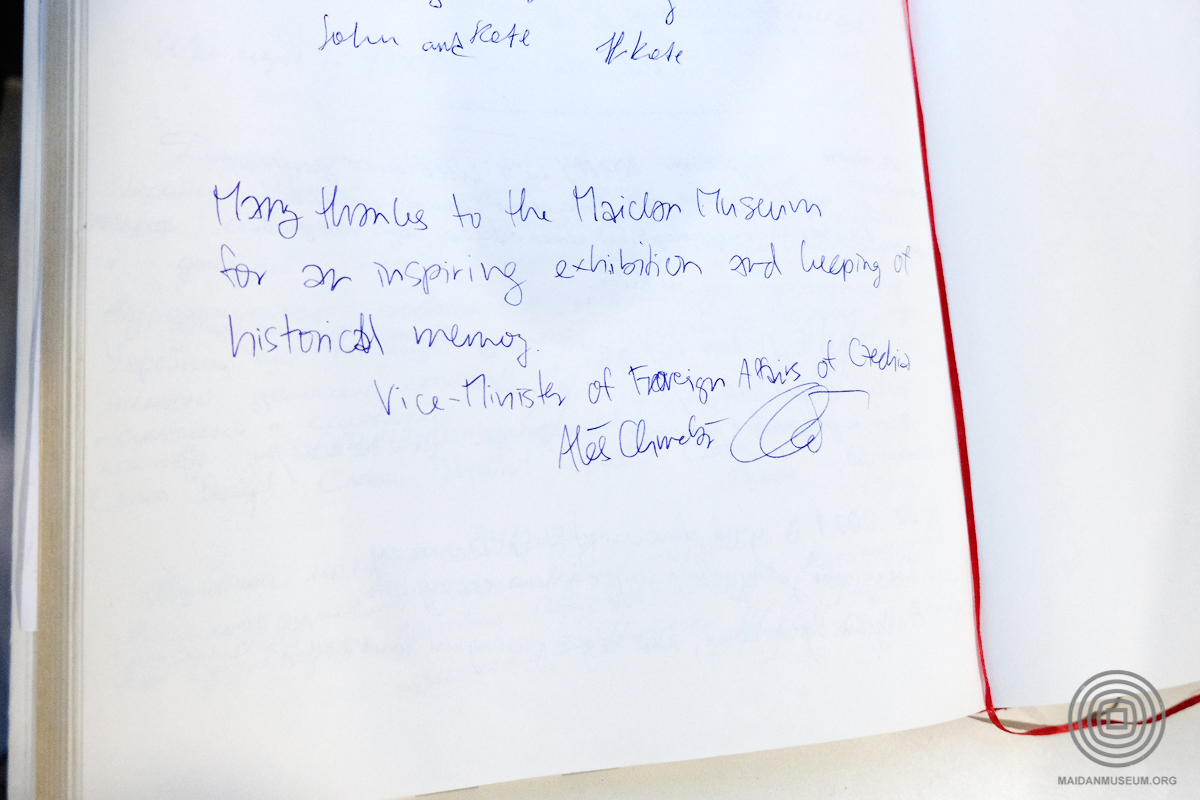 John and Kate Kate
Many thanks to the Maidan Museum
for an inspiring exhibition and keeping of
historical memory.
Vice-Minister of Foreign Affairs of Czechia
Aleš Chmelař
MAIDANMUSEUM.ORG